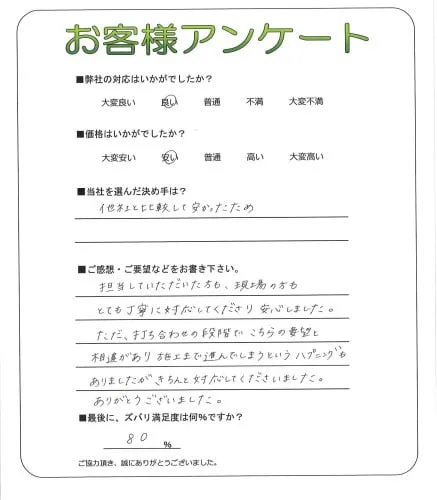 お客様アンケート
■弊社の対応はいかがでしたか？
大変良い 良い 普通 不満 大変不満
■価格はいかがでしたか？
大変安い 安い 普通 高い 大変高い
■当社を選んだ決め手は？
他社と比較して安かったため
■ご感想・ご要望などをお書き下さい。
担当していただいた方も、現場の方も
とても丁寧に対応してくださり安心しました。
ただ、打ち合わせの段階でこちらの要望と
相違があり施工まで進んでしまうというハプニングも
ありましたがきちんと対応してくださいました。
ありがとうございました。
■最後に、ズバリ満足度は何%ですか？
80 %
ご協力頂き、誠にありがとうございました。